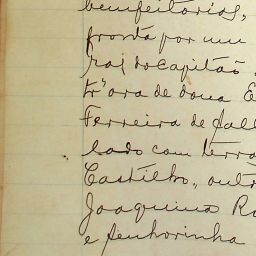 bemfeitorias,
fronta por um
do Capitão
tr'ora de dona E
Ferreira de
lado com terra
Castilho, outr
Joaquina Ro
e Senhorinha